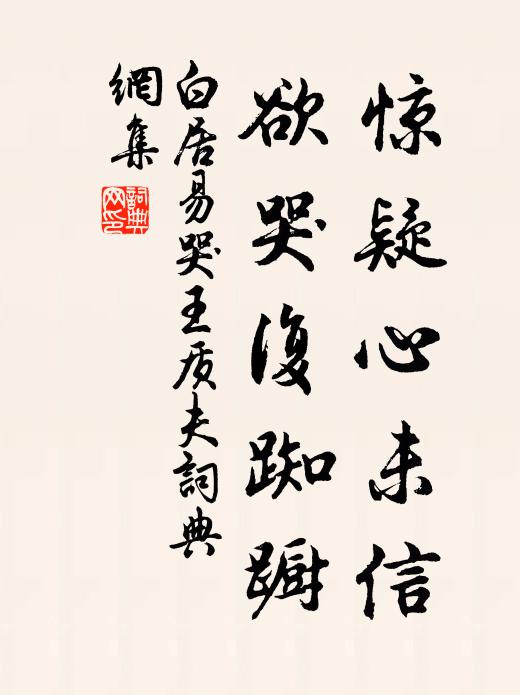 惊疑心未信
欲哭復踟蹰
白居易哭王质夫詞典
網集
詞典网印